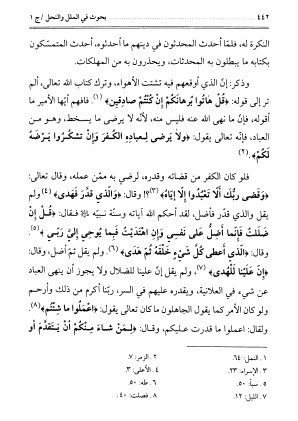 ٤٤٢ بحوث في الملل والنحل /ج ١
النكرة له، فلمّا أحدث المحدثون في دينهم ما أحدثوه، أحدث المتمسّكون
بكتابه ما يبطلون به المحدثات، ويحذرون به من المهلكات.
وذكر: إنّ الذي أوقعهم فيه تشتت الأهواء، وترك كتاب الله تعالى، ألم
تر إلى قوله: ﴿قُلْ هَاتُوا بُرهانَكُمْ إِنْ كُنْتُمْ صادِقِين﴾ (١). فافهم أيّها الأمير ما
أقوله، فإنّ ما نهى الله عنه فليس منه، لأنّه لا يرضى ما يسخط، وهو من
العباد، فإنّه تعالى يقول: ﴿ولاَ يَرضى لِعِبادِهِ الكُفرَ وَإِنْ تَشكُرُوا يَرْضَهُ
لَكُمْ﴾.(٢)
فلو كان الكفر من قضائه وقدره، لرضي به ممن عمله، وقال تعالى:
﴿وَقَضى رَبُّكَ أَلّا تَعْبُدُوا إِلّا إِيّاهُ﴾ (٣)؟! وقال: ﴿وَالَّذي قَدَّرَ فَهَدى﴾ (٤) ولم
يقل والذي قدّر فأضل، لقد أحكم الله آياته وسنّة نبيّه ﷺ فقال: ﴿قُلْ إِنْ
ضَلَلْتُ فَإِنّما أَضِلُّ عَلى نَفْسِي وَإِنِ اهْتَدَيْتُ فَبِما يُوحِي إِليَّ رَبِّي﴾ (٥)
وقال: ﴿الَّذي أَعطى كُلَّ شَيْءٍ خَلْقَهُ ثُمَّ هَدى﴾ (٦). ولم يقل ثمّ أضل، وقال:
﴿إِنَّ عَلَيْنا لَلْهُدى﴾ (٧)، ولم يقل إنّ علينا للضلال ولا يجوز أن ينهى العباد
عن شيء في العلانية، ويقدره عليهم في السر، ربّنا أكرم من ذلك وأرحم
ولو كان الأمر كما يقول الجاهلون ما كان تعالى يقول: ﴿اعْمَلُوا ما شِئْتُم﴾(٨)
ولقال: اعملوا ما قدرت عليكم، وقال: ﴿لِمَنْ شاءَ مِنْكُمْ أَنْ يَتَقَدَّمَ أَو
١. النمل: ٦٤. ٢. الزمر: ٧.
٣. الإسراء: ٢٣. ٤. الأعلى: ٣.
٥. سبأ: ٥٠. ٦. طه: ٥٠.
٧. الليل: ١٢. ٨. فصلت: ٤٠.